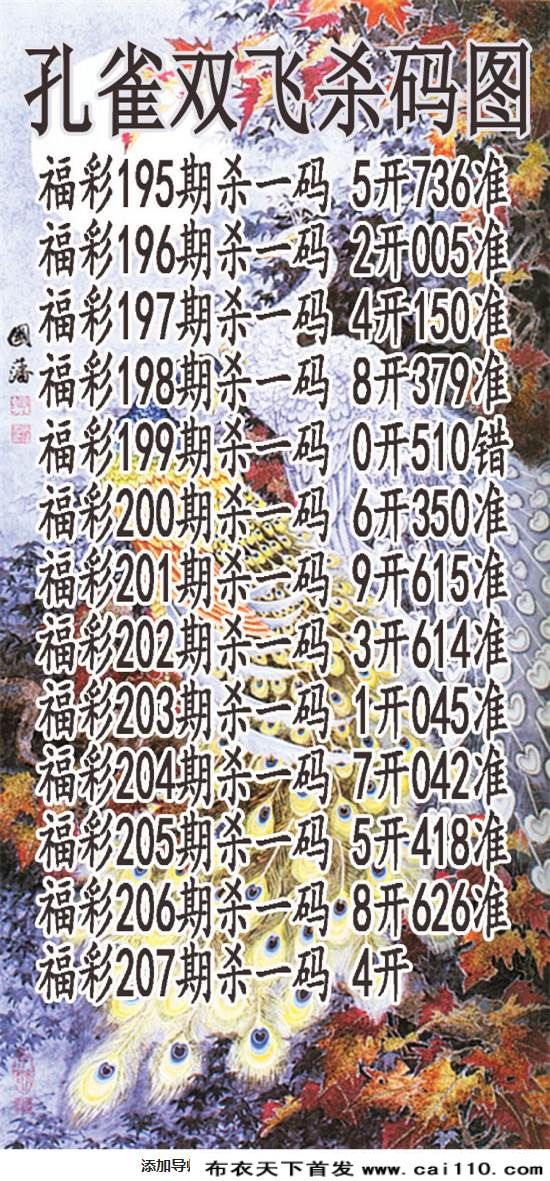 孔雀双飞杀码图
福彩195期杀一码 5开736准
福彩196期杀一码 2开005准
福彩197期杀一码 4开150准
福彩198期杀一码 8开379准
福彩199期杀一码 0开510错
福彩200期杀一码 6开350准
福彩201期杀一码 9开615准
福彩202期杀一码 3开614准
福彩203期杀一码 1开045准
福彩204期杀一码 7开042准
福彩205期杀一码 5开418准
福彩206期杀一码 8开626准
福彩207期杀一码 4开
國藩
添加导
布衣天下首发 www.cai110.com